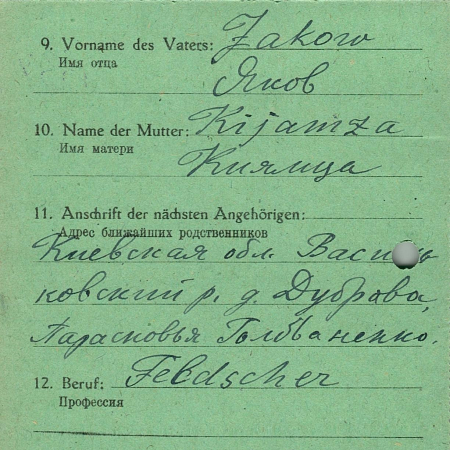 9. Vorname des Vaters: Jakow
Имя отца
Яков
10. Name der Mutter: Kijamza
Имя матери
Киямца
11. Anschrift der nächsten Angehörigen:
Адрес ближайших родственников
Киевская обл. Василь
ковский р. д. Дуброва,
Парасковья
12. Beruf: Feldscher
Профессия